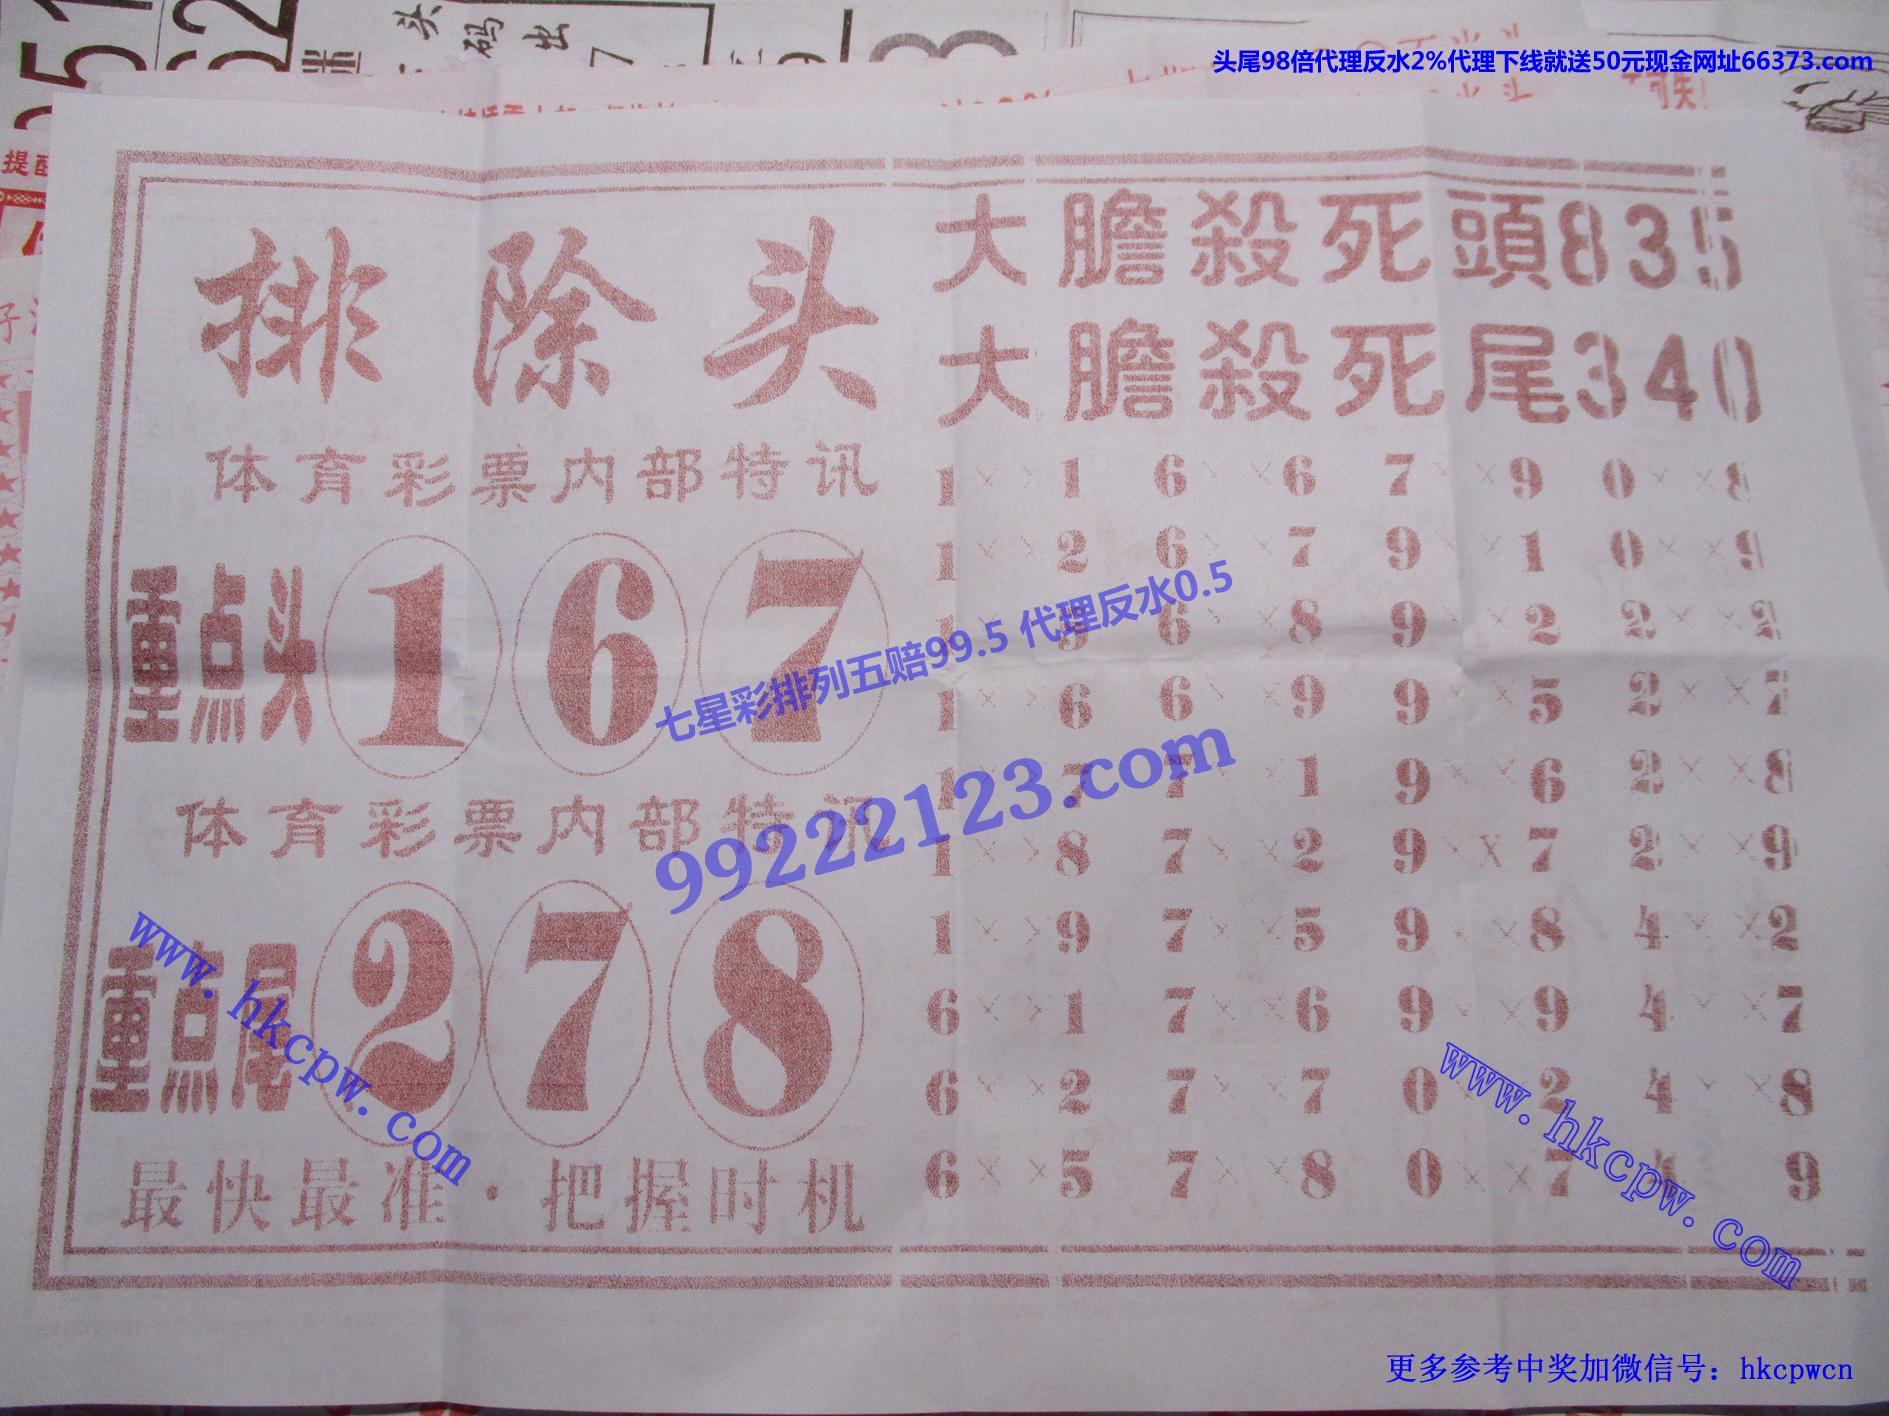 头 码 出
头尾98倍代理反水2%代理下线就送50元现金网址66373.com
提醒
排除头
体育彩票内部特讯
重点头 1 6 7
体育彩票内部特讯
重点尾 2 7 8
最快最准·把握时机
大膽殺死頭835
大膽殺死尾340
1××1 6××6 7××9 0××8
1××2 6××7 9××1 0××9
6××8 9××2 2××2
1××6 6××9 9××5 2××7
1××7 7××1 9××6 2××8
1××8 7××2 9××7 2××9
1××9 7××5 9××8 4××2
6××1 7××6 9××9 4××7
6××2 7××7 0××2 4××8
6××5 7××8 0××7 4××9
七星彩排列五赔99.5 代理反水0.5
99222123.com
www.hkcpw.com
www.hkcpw.com
更多参考中奖加微信号：hkcpwcn